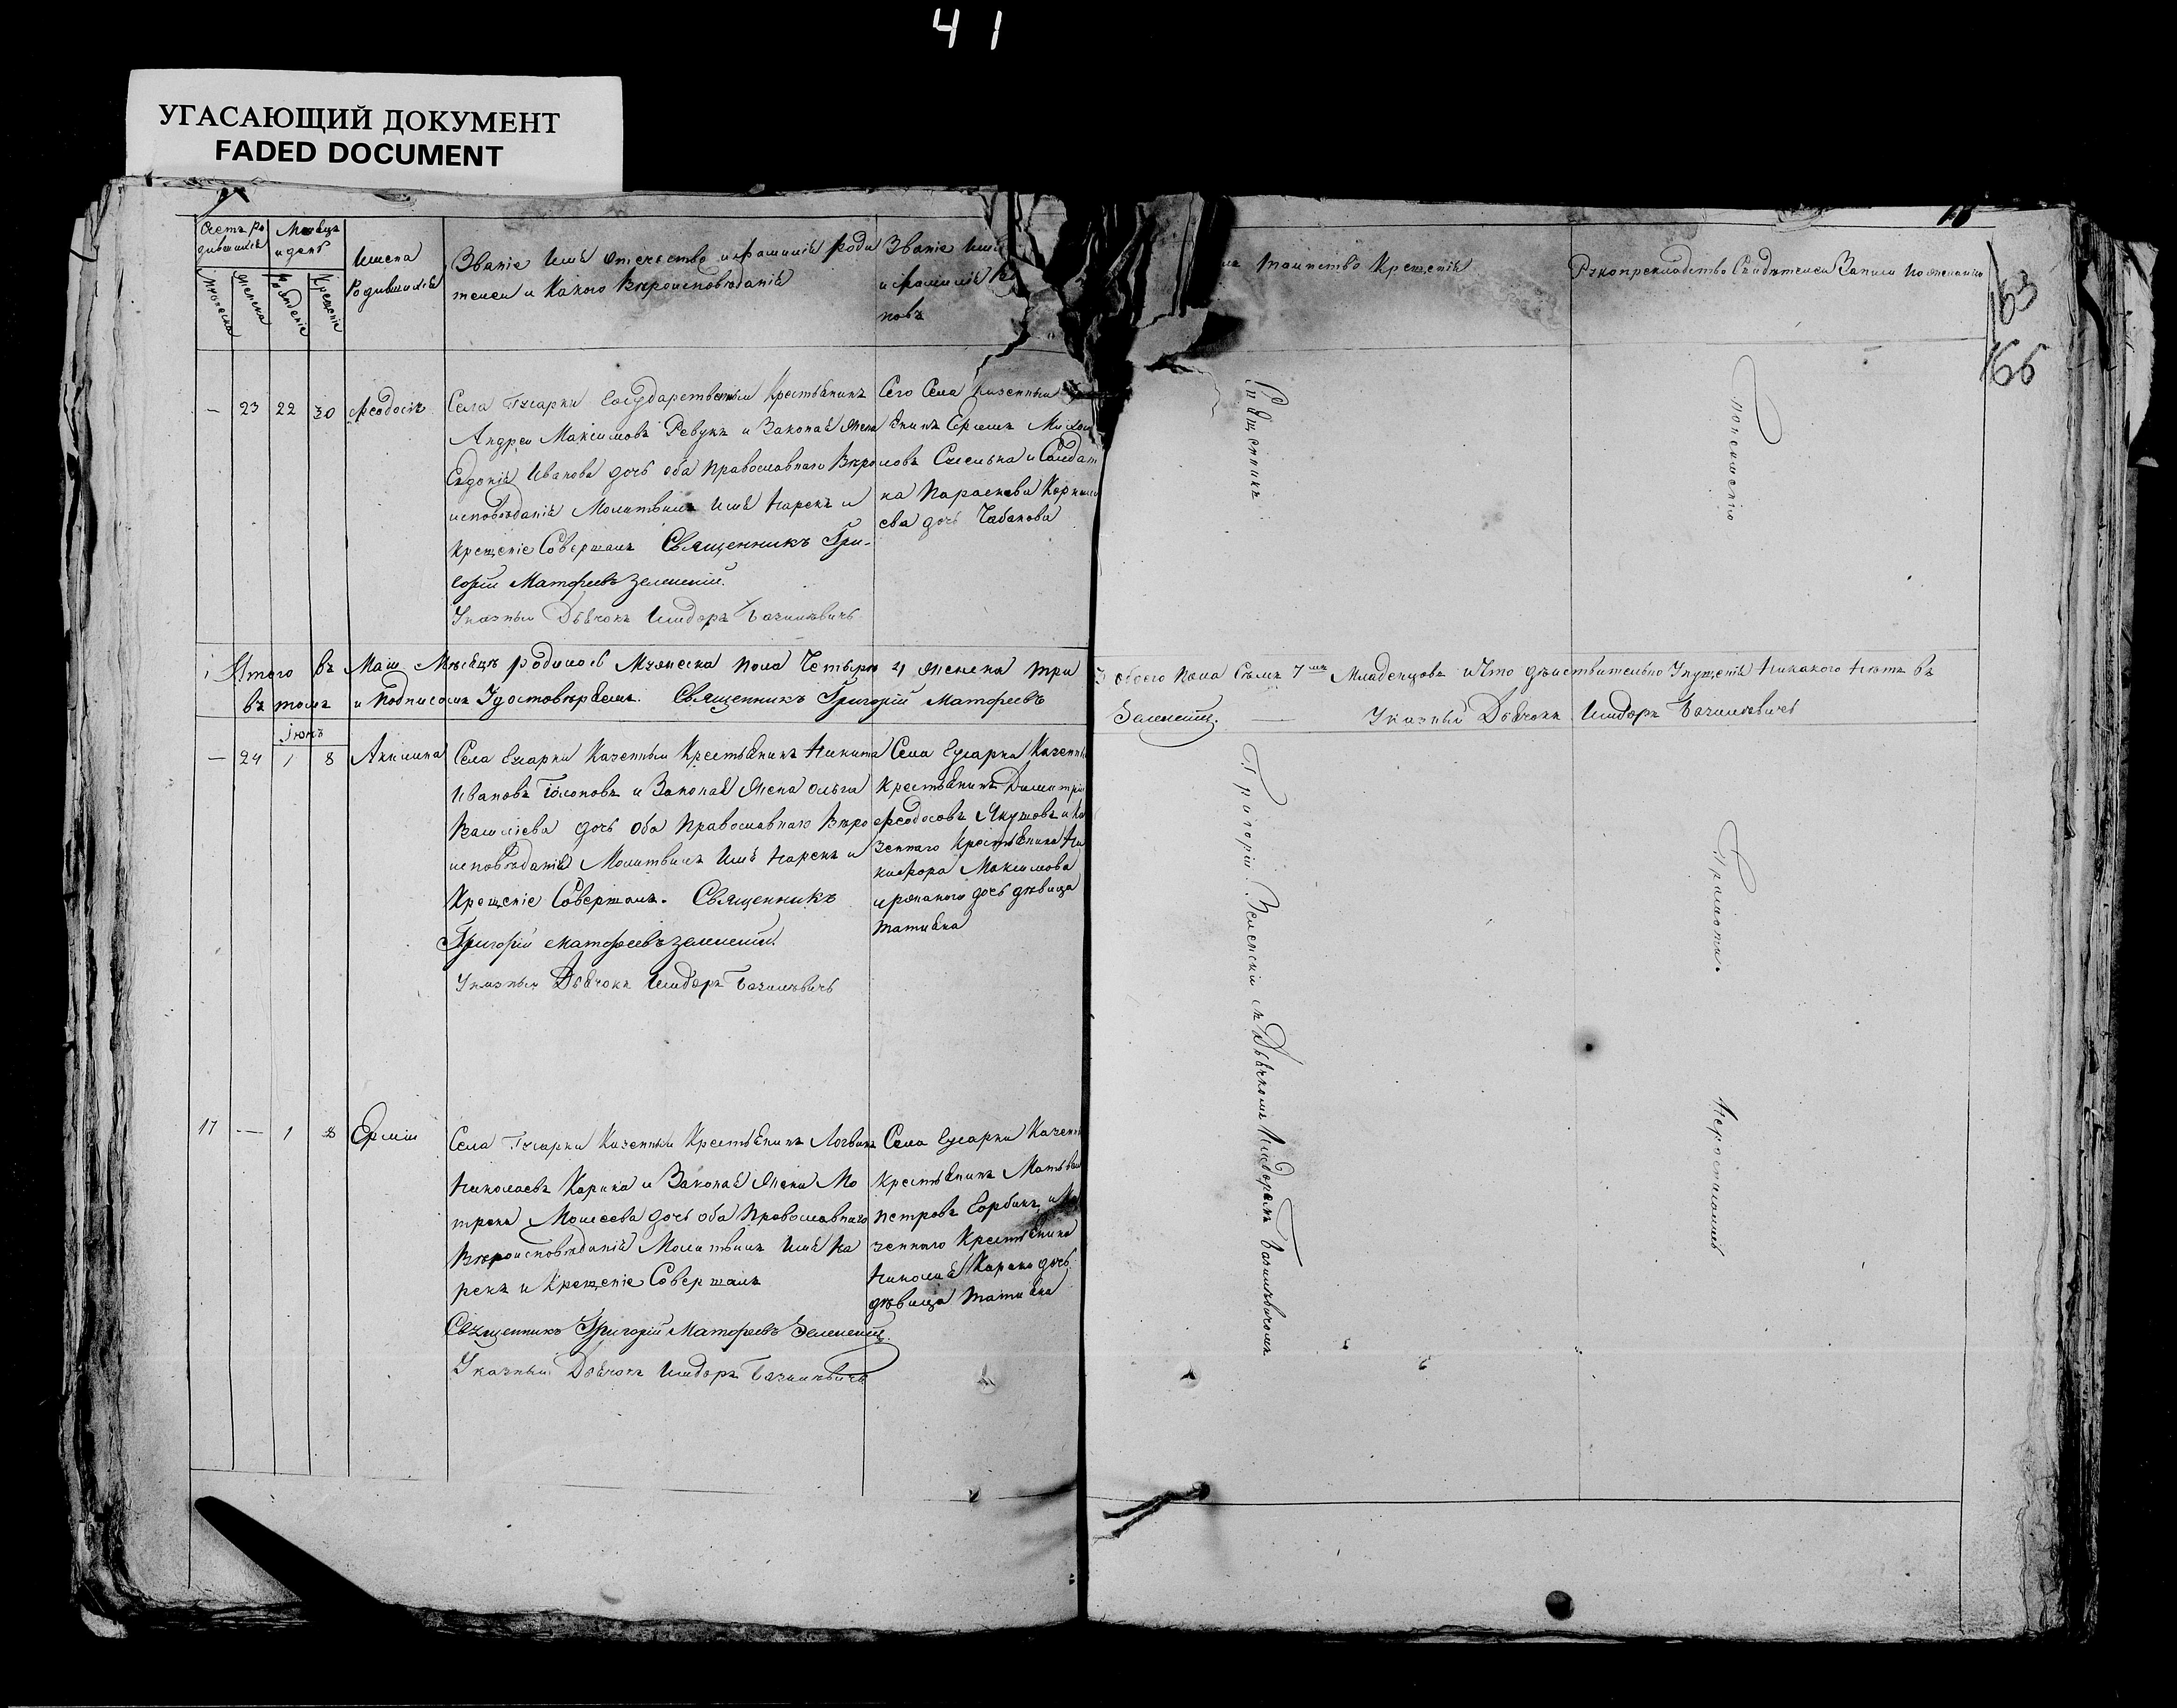 41
УГАСАЮЩИЙ ДОКУМЕНТ
FADED DOCUMENT
Счетъ ро
дившихся
Мѣсяцъ
и день
Имена
Родившихся
Званіе Имя отечество и фамилія роди
телей и Какого Вѣроисповѣданія
Званіе Имя
и фамилія
повъ
Мужеска
Женска
Рожденіе
Крещеніе
таинство Крещенія
Рукоприкладство Свидѣтелей Записи по желанію
163
166
— 23 22 30 Феодосія
Села Гусарки Государственный Крестьянинъ
Андрей Максимовъ Ревукъ и Законая Жена
Евдокія Иванова дочь оба Православнаго Вѣро
исповѣданія Молитвилъ Имя Нарекъ и
Крещеніе Совершалъ Священникъ Гри-
горій Матфеевъ Зеленскій.
Указный Дьячокъ Исидоръ Базилевичъ
Сего Села Казенный
янинъ Ермилъ
ловъ и Солдат
ка Параскева Корнили
ева дочь Чабанова
Священникъ
Итого въ Маіи Мѣсяцѣ родилось Мужеска пола Четыри 4 Женска три
3 обоего пола Семъ 7мъ Младенцовъ и Что дѣйствительно Упущенія Никакого Нѣтъ въ
въ томъ и Подписомъ Удостовѣряемъ. Священникъ Григорій Матфеевъ
Зеленскій. — Указный Дьячокъ Исидоръ Базилевичъ
Іюнь
— 24 1 8 Акилина
Села Гусарки Казенный Крестьянинъ Никита
Ивановъ Голоповъ и Законая Жена Ольга
Василіева дочь Оба Православнаго Вѣро
исповѣданія Молитвилъ Имя Нарекъ и
Крещеніе Совершалъ. Священникъ
Григорій Матфеевъ Зеленскій.
Указный Дьячокъ Исидоръ Базилевичъ
Села Гусарки Казенны
Крестьянинъ Димитрій
Феодосовъ Якушовъ и Ка
зеннаго Крестьянина Ни
кифора Максимова
дочь дѣвица
Татияна
Григорій Зеленскій съ Дьячкомъ Исидоромъ Базилевичомъ
Грамоти.
17 — 1 8 Ермій
Села Гусарки Казенный Крестьянинъ Логвинъ
Николаевъ Карика и Законая Жена Мо
трона Моисеева дочь оба Православнаго
Вѣроисповѣданія Молитвилъ Имя На
рекъ и Крещеніе Совершалъ
Священникъ Григорій Матфеевъ Зеленскій.
Указный Дьячокъ Исидоръ Базилевичъ
Села Гусарки Казенны
Крестьянинъ Матвѣй
Петровъ Горбань и Ка
зеннаго Крестьянина
Николая Карики дочь
дѣвица Татияна